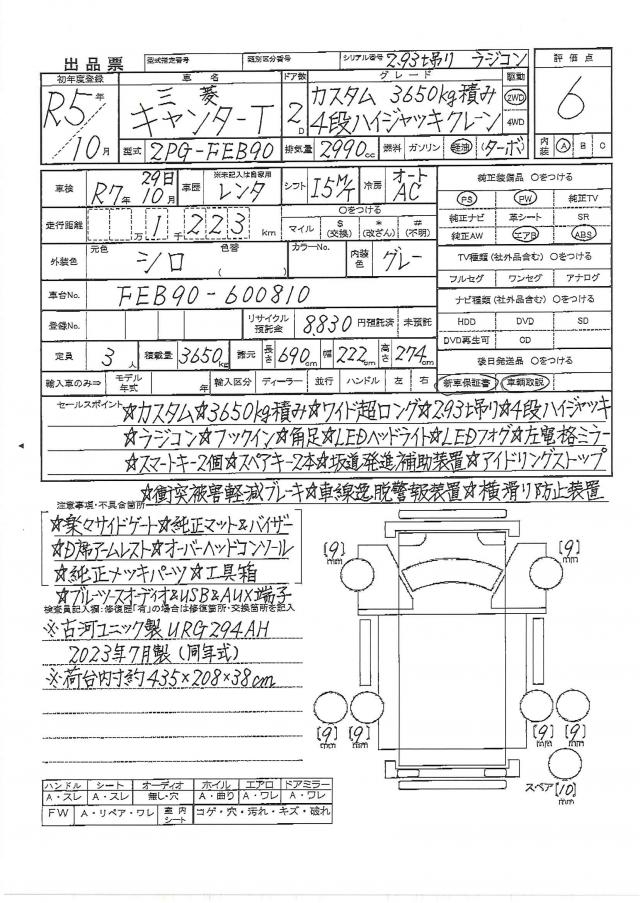 出品票 型式指定番号 類別区分番号 シリアル番号 2.93t吊り ラジコン 評価点
初年度登録 車名 ドア数 グレード 駆動
R5年 10月 三菱 キャンターT 2D カスタム 3650kg積み 2WD 6
4段ハイジャッキクレーン 4WD
型式 2PG-FEB90 排気量 2990cc 燃料 ガソリン 軽油 (ターボ) 内装 A B C
車検 R7年 29日 10月 車歴 ※未記入は自家用 レンタ シフト I5M/T 冷房 オート AC 純正装備品 〇をつける
PS PW 純正TV
走行距離 1千223km 〇をつける マイル $(交換) *(改ざん) #(不明) 純正ナビ 革シート SR
純正AW エアB ABS
外装色 元色 シロ 色替 ( ) カラーNo. 内装色 グレー TV種類(社外品含む)〇をつける
フルセグ ワンセグ アナログ
車台No. FEB90-600810 ナビ種類(社外品含む)〇をつける
登録No. リサイクル預託金 8,830円預託済 未預託 HDD DVD SD
DVD再生可 CD
定員 3人 積載量 3650kg 諸元 長さ 690cm 幅 222cm 高さ 274cm 後日発送品 〇をつける
輸入車のみ⇒ モデル年式 年 輸入区分 ディーラー 並行 ハンドル 左 右 新車保証書 車輌取説
セールスポイント ☆カスタム☆3650kg積み☆ワイド超ロング☆2.93t吊り☆4段ハイジャッキ
☆ラジコン☆フックイン☆角足☆LEDヘッドライト☆LEDフォグ☆左電格ミラー
☆スマートキー2個☆スペアキー2本☆坂道発進補助装置☆アイドリングストップ
☆衝突被害軽減ブレーキ☆車線逸脱警報装置☆横滑り防止装置
注意事項・不具合箇所
☆楽々サイドゲート☆純正マット&バイザー
☆D席アームレスト☆オーバーヘッドコンソール
☆純正メッキパーツ☆工具箱
☆ブルーツースオーディオ&USB&AUX端子
検査員記入欄:修復歴「有」の場合は修復箇所・交換箇所を記入
※古河ユニック製URG294AH
2023年7月製(同年式)
※荷台内寸約435×208×38cm
[9]mm [9]mm
[9]mm [9]mm [9]mm [9]mm
スペア[10]mm
ハンドル シート オーディオ ホイル エアロ ドアミラー
A・スレ A・スレ 無し・穴 A・曲り A・ワレ A・ワレ
FW A・リペア・ワレ 室内シート コゲ・穴・汚れ・キズ・破れ